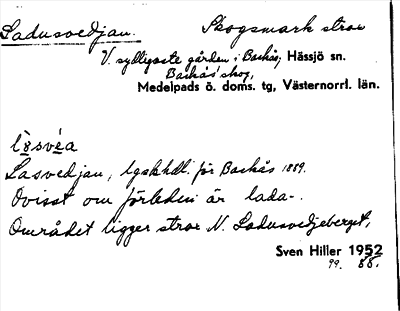 Ladusvedjan. Skogsmark strax
V. sydligaste gården i Backås, Hässjö sn.
Backås' skog,
Medelpads ö. doms. tg, Västernorrl. län.
Lasvedjan, lgskhdl. för Backås 1889.
Ovisst om förleden är lada-.
Området ligger strax N. Ladusvedjeberget,
Sven Hiller 1952
99. 88.